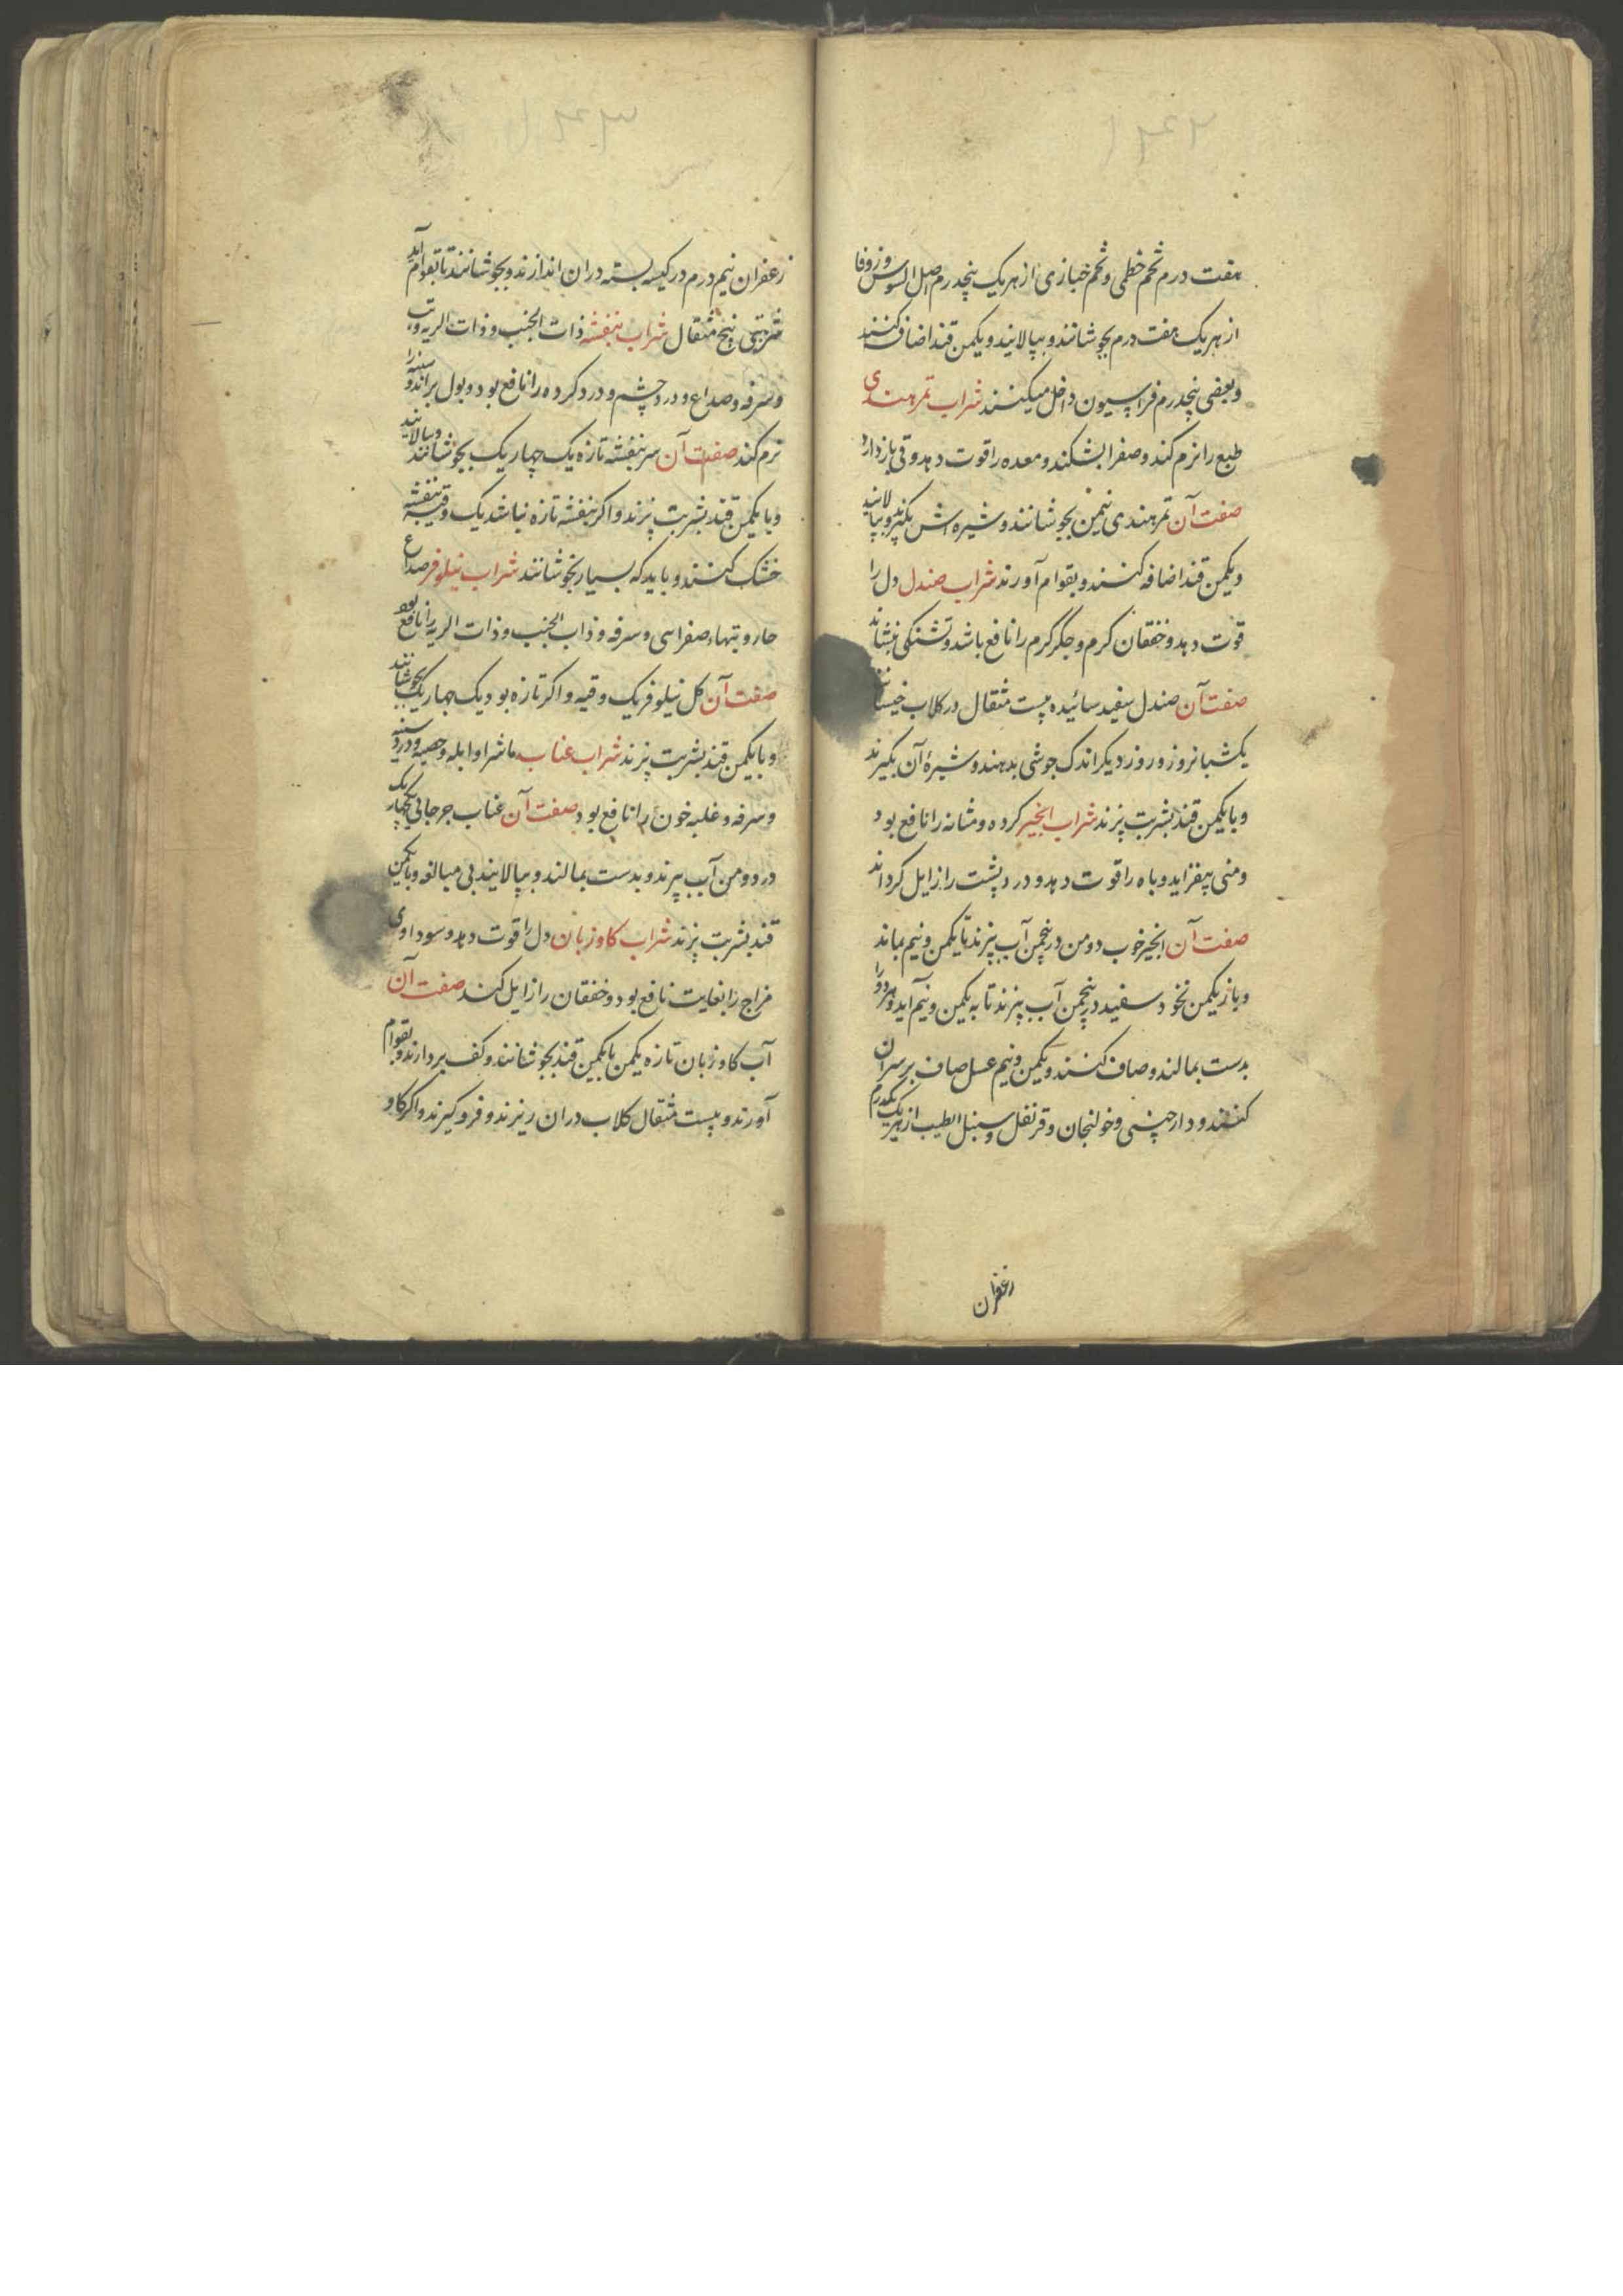 هفت درم تخم خطمی و تخم خبازی از هر یک پنجدرم اصل السوس و زوفا
از هر یک هفت درم بجوشانند و بپالایند و یکمن قند اضافه کنند
و بعضی پنجدرم فراسیون داخل میکنند شراب تمر هندی
طبع را نرم کند و صفرا بشکند و معده را قوت دهد و قی بازدارد
صفت آن تمر هندی نیمن بجوشانند و شیره اش بگیرند و بپالایند
و یکمن قند اضافه کنند و بقوام آورند شراب صندل دل را
قوت دهد و خفقان کرم و جگر کرم را نافع باشد و تشنکی بنشاند
صفت آن صندل سفید سائیده بیست مثقال در کلاب خیسانند
یکشبانروز و روز دیکر اندک جوشی بدهند و شیرهٔ آن بکیرند
و با یکمن قند بشربت پزند شراب انجیر کرده و مثانه را نافع بود
و منی بیفزاید و باه را قوت دهد و درد پشت را زایل کرداند
صفت آن انجیر خوب دو من در پنجمن آب بپزند تا یکمن و نیم بماند
و باز یکمن نخود سفید در پنجمن آب بپزند تا به یکمن و نیم آید و هر دو را
بدست بمالند و صاف کنند و یکمن و نیم عسل صاف بر سر آن
کنند و دارچینی و خولنجان و قرنفل و سنبل الطیب از هر یک یکدرم
زعفران
زعفران نیم درم در کیسه بسته در ان اندازند و بجوشانند تا بقوام آید
شربتی پنج مثقال شراب بنفشه ذات الجنب و ذات الریه و تب
و سرفه و صداع و درد چشم و درد کرده را نافع بود و بول براند و سینه را
نرم کند صفت آن سر بنفشه تازه یک چهاریک بجوشانند و بپالایند
و با یکمن قند بشربت پزند و اکر بنفشه تازه نباشد یک وقیه بنفشه
خشک کنند و باید که بسیار نجوشانند شراب نیلوفر صداع
حار و تبهاء صفراسی و سرفه و ذاب الجنب و ذات الریه را نافع بود
صفت آن کل نیلوفر یک وقیه و اکر تازه بود یک چهاریک بجوشانند
و با یکمن قند بشربت پزند شراب عناب ماشرا و ابله و حصبه و درد سینه
و سرفه و غلبه خون را نافع بود صفت آن عناب جرجانی یکچهاریک
در دو من آب بپزند و بدست بمالند و بپالایند بی مبالغه و با یکمن
قند بشربت پزند شراب کاوزبان دل را قوت دهد و سوداوی
مزاج را بغایت نافع بود و خفقان را زایل کند صفت آن
آب کاوزبان تازه یکمن با یکمن قند بجوشانند و کف بردارند و بقوام
آورند و بیست مثقال کلاب در ان ریزند و فرو کیرند و اکر کاو